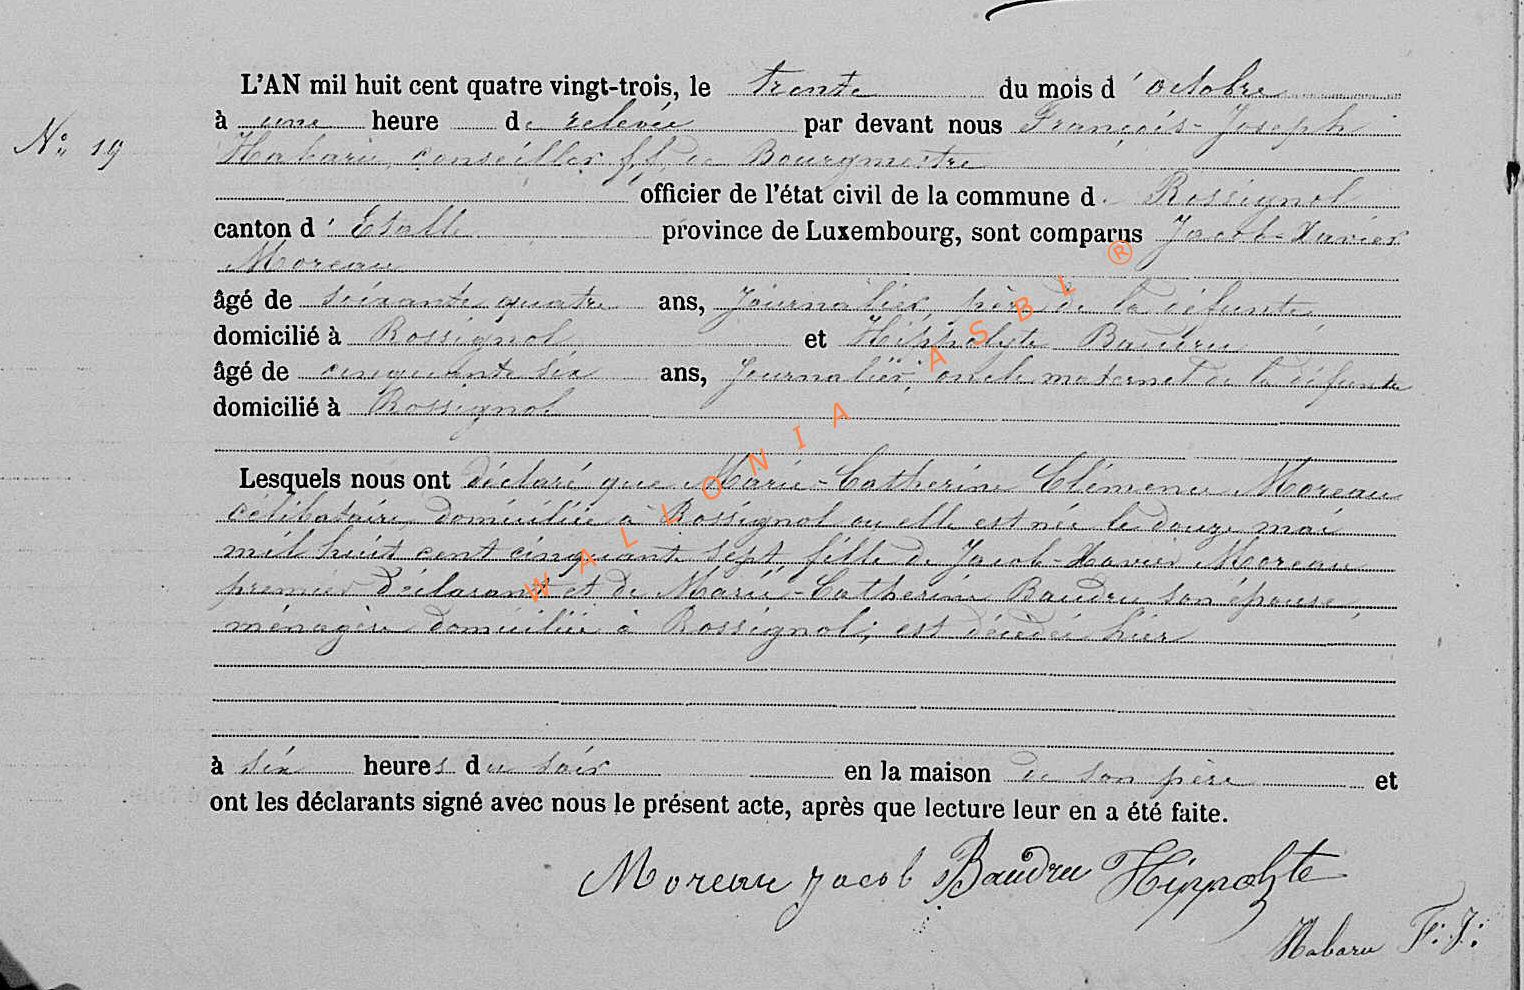 L'AN mil huit cent quatre vingt-trois, le trente du mois d'octobre
à une heure de relevée par devant nous François-Joseph
N° 19
Habaru, conseiller f.f. de Bourgmestre
officier de l'état civil de la commune de Rossignol
canton d'Etalle province de Luxembourg, sont comparus Jacob-Xavier
Moreau
âgé de soixante quatre ans, Journalier, père de la défunte,
domicilié à Rossignol et Hippolyte Baudru
âgé de cinquante six ans, Journalier, oncle maternel de la défunte
domicilié à Rossignol
Lesquels nous ont déclaré que Marie-Catherine Clémence Moreau
célibataire domiciliée à Rossignol ou elle est née le douze mai
mil huit cent cinquante sept, fille de Jacob-Xavier Moreau
premier déclarant et de Marie-Catherine Baudru son épouse,
ménagère domiciliée à Rossignol; est décédée hier
à six heures du soir en la maison de son père et
ont les déclarants signé avec nous le présent acte, après que lecture leur en a été faite.
Moreau Jacob Baudru Hippolyte
Habaru F: J:
WALLONIA ASBL ®